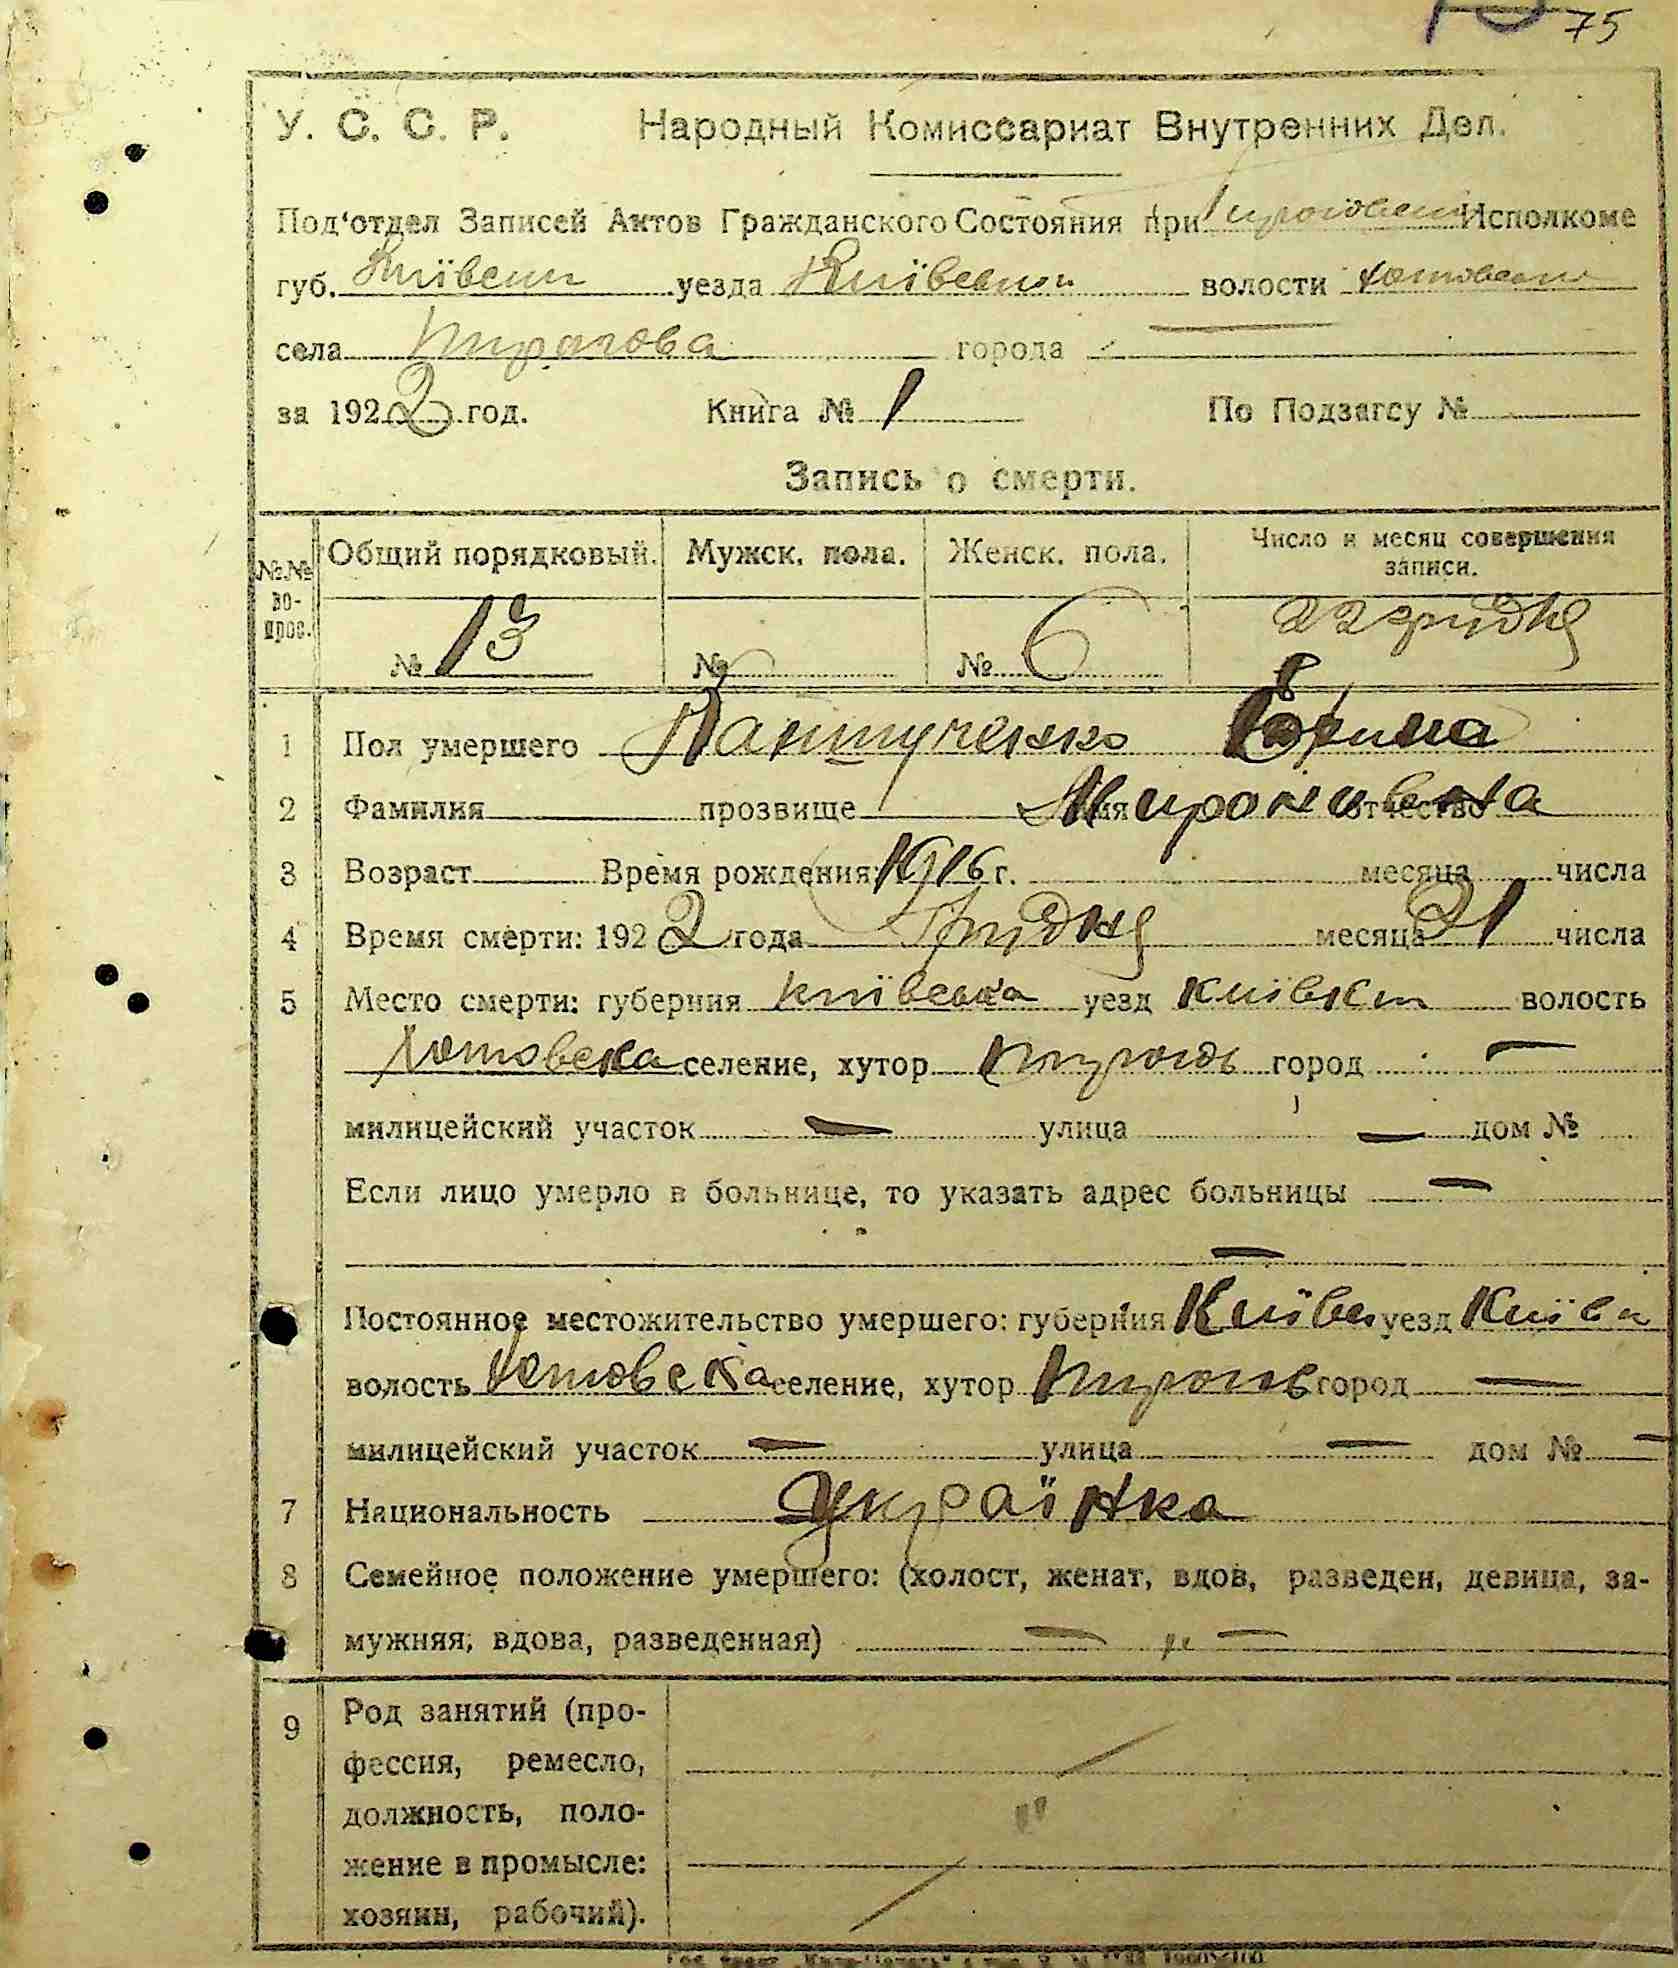 75
У. С. С. Р. Народный Комиссариат Внутренних Дел.
Под'отдел Записей Актов Гражданского Состояния при Исполкоме
губ. Київськ уезда Київськои волости Хотовскои
села Пирогова города —
за 1922 год. Книга № 1 По Подзагсу №
Запись о смерти.
№№ во-прос. Общий порядковый. Мужск. пола. Женск. пола. Число и месяц совершения записи.
№ 13 № № 6 22 грудня
1 Пол умершего
2 Фамилия прозвище имя Миронивна отчество
3 Возраст Время рождения: 1916 г. месяца числа
4 Время смерти: 1922 года Грудня месяца 21 числа
5 Место смерти: губерния Київська уезд Київськ волость
Хотовска селение, хутор Пирогов город —
милицейский участок — улица — дом №
Если лицо умерло в больнице, то указать адрес больницы —
—
Постоянное местожительство умершего: губерния Київс уезд Київ
волость Хотовска селение, хутор Пирогов город —
милицейский участок — улица — дом № —
7 Национальность Українка
8 Семейное положение умершего: (холост, женат, вдов, разведен, девица, за-
мужняя, вдова, разведенная) — " —
9 Род занятий (про-
фессия, ремесло,
должность, поло-
жение в промысле:
хозяин, рабочий).